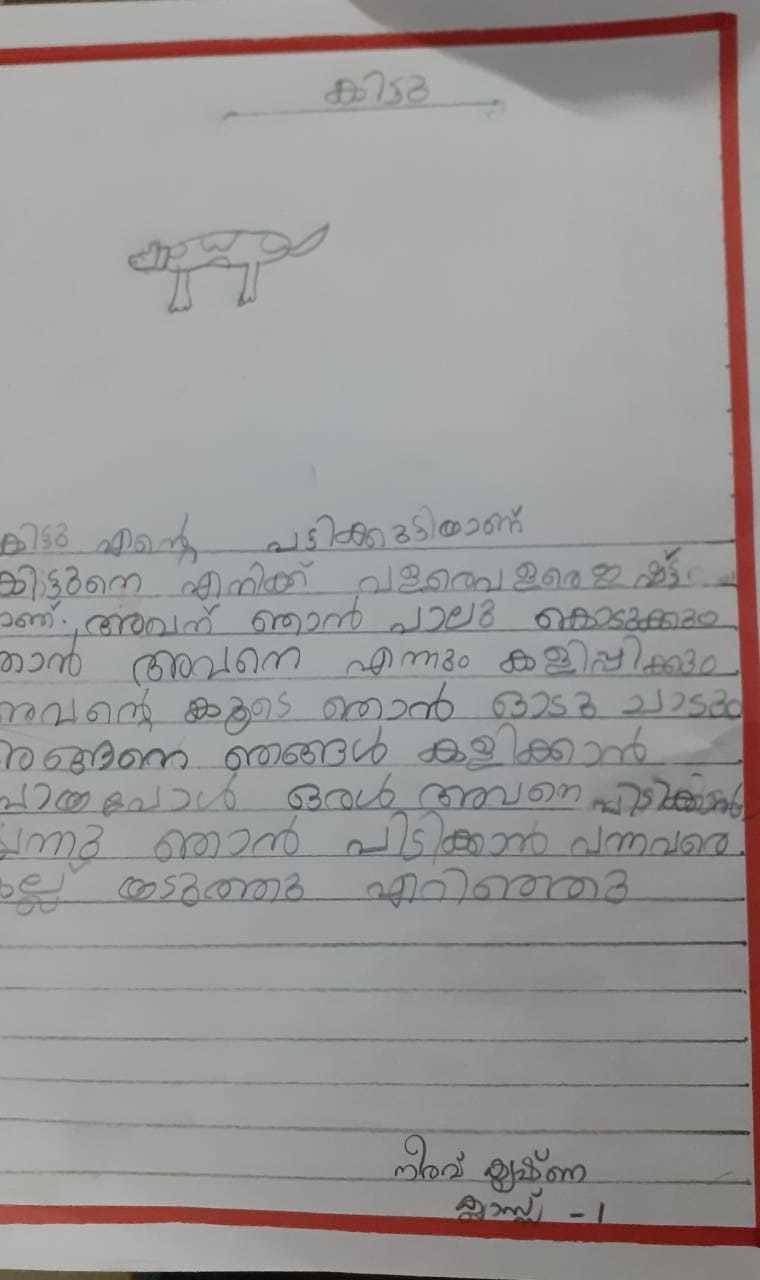 കിട്ടു
കിട്ടു എന്റെ പട്ടിക്കുട്ടിയാണ്
കിട്ടുനെ എനിക്ക് വളരെവളരെ ഇഷ്ട
മാണ്. അവന് ഞാൻ പാലു കൊടുക്കും
ഞാൻ അവനെ എന്നും കളിപ്പിക്കും
അവന്റെ കൂടെ ഞാൻ ഓടു ചാടും
അങ്ങനെ ഞങ്ങൾ കളിക്കാൻ
പോയപ്പോൾ ഒരാൾ അവനെ പിടിക്കാൻ
വന്നു ഞാൻ പിടിക്കാൻ വന്നവരെ
കല്ല് എടുത്തു എറിഞ്ഞു
നീരവ് കൃഷ്ണ
ക്ലാസ്സ് - 1